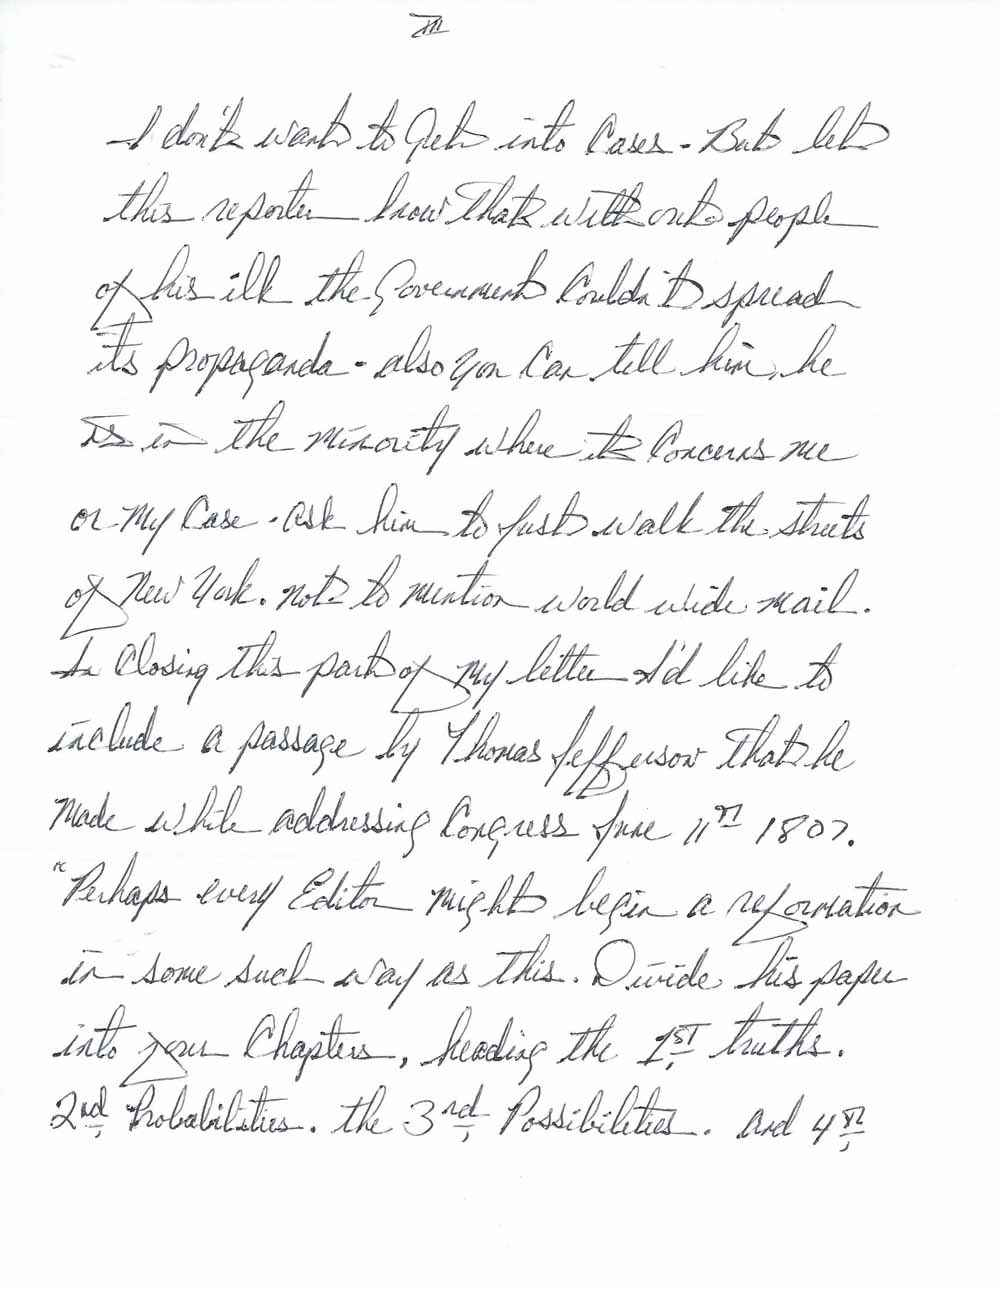 III
I don't want to Get into Cases - But let
this reporter know that without people
of his ilk the Government Couldn't spread
its propaganda - also you Can tell him, he
is in the minority where it Concerns me
or My Case - ask him to Just walk the streets
of New York. not to mention world wide mail.
In Closing this part of My letter I'd like to
include a passage by Thomas Jefferson that he
Made while addressing Congress June 11th 1807.
"Perhaps every Editor might begin a reformation
in some such way as this. Divide his paper
into four Chapters, heading the 1st, truths.
2nd, Probabilities. the 3rd, Possibilities. And 4th,